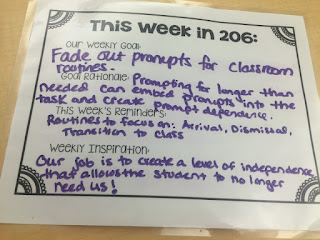 This Week in 206:
Our Weekly Goal:
Fade out prompts for classroom
routines.
Goal Rationale: Prompting for longer than
needed can embed prompts into the
task and create prompt dependence.
This Week's Reminders:
Routines to focus on: Arrival, Dismissal,
Transition to class
Weekly Inspiration:
Our job is to create a level of independence
that allows the student to no longer
need us!